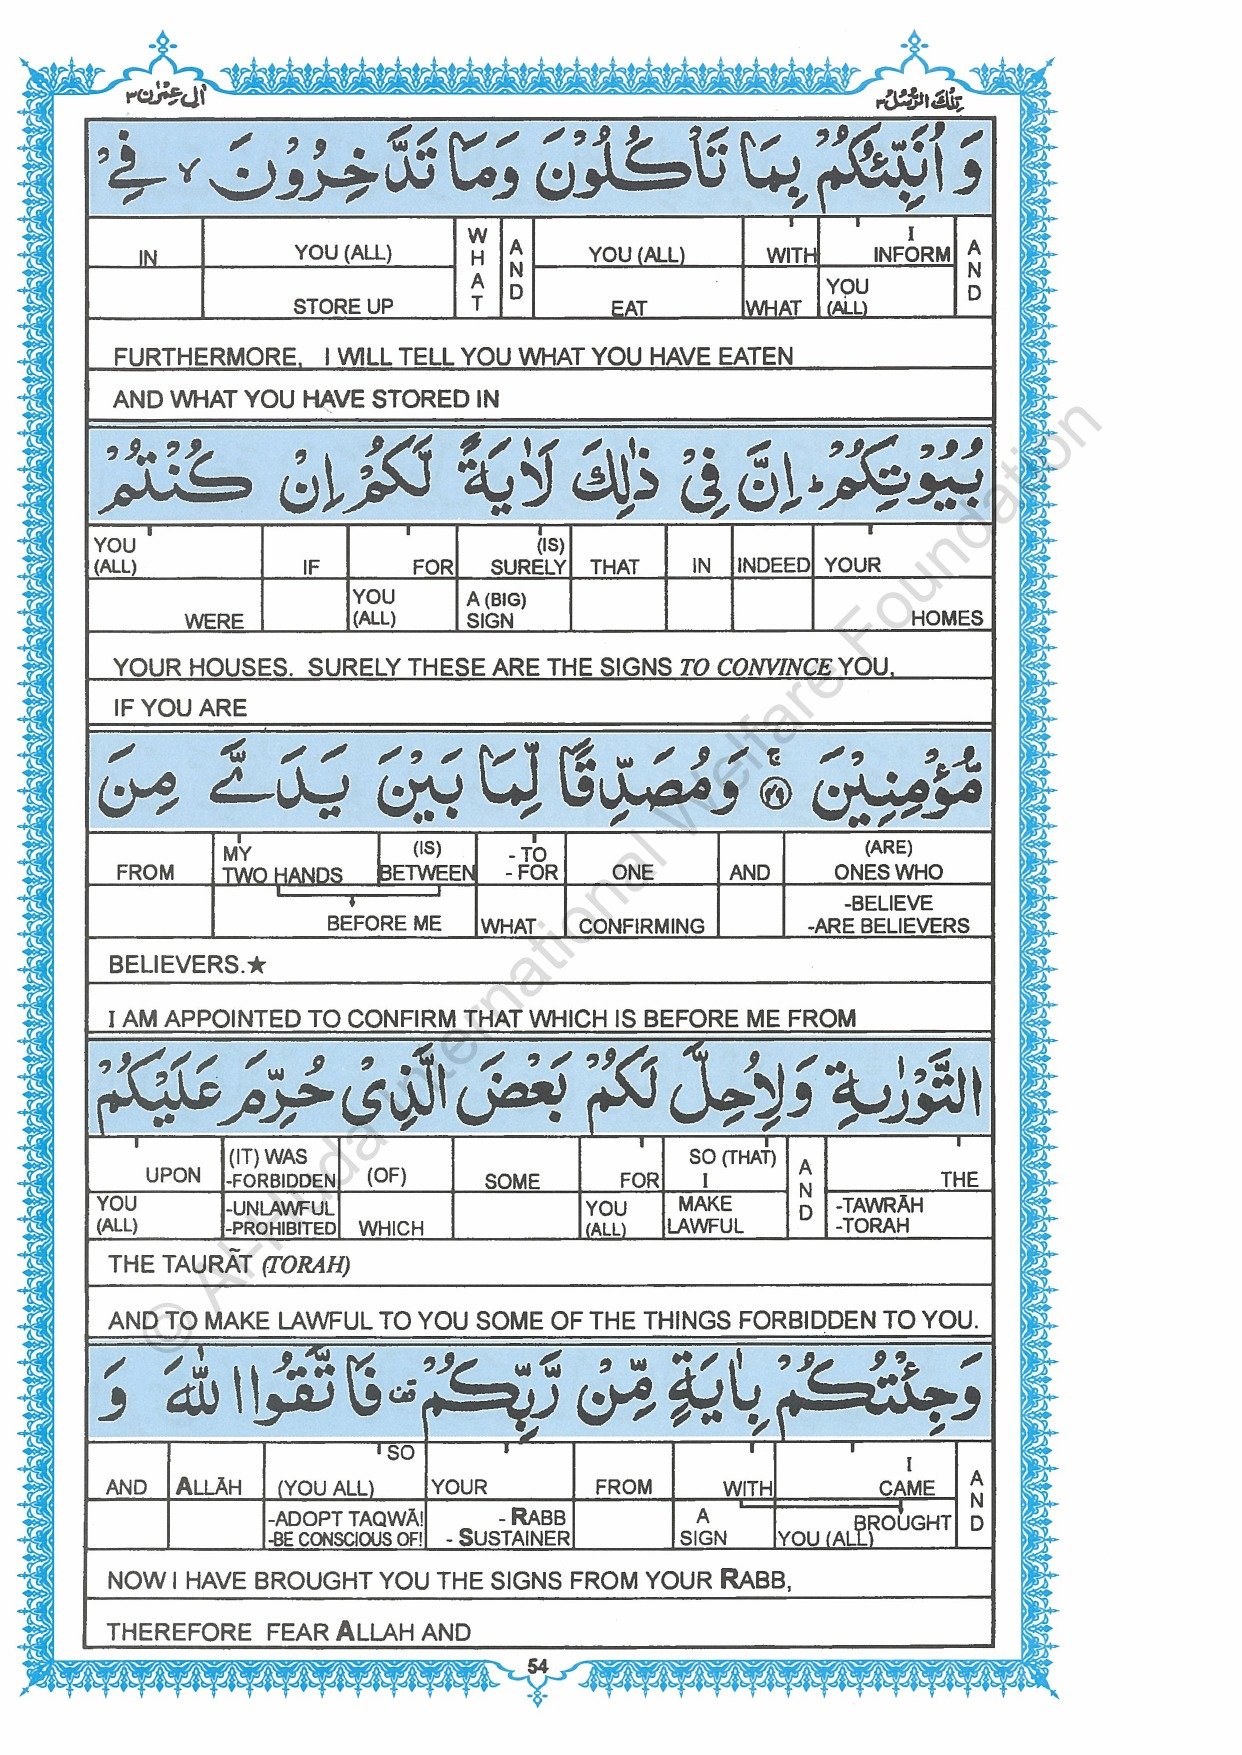 اٰلِ عِمْرٰن ٣
تِلْكَ الرُّسُلُ ٣
وَ اُنَبِّئُكُمْ بِمَا تَاْكُلُوْنَ وَمَا تَدَّخِرُوْنَ ۙ فِيْ
IN YOU (ALL) WHAT AND YOU (ALL) WITH I INFORM AND
STORE UP EAT WHAT YOU (ALL)
FURTHERMORE, I WILL TELL YOU WHAT YOU HAVE EATEN
AND WHAT YOU HAVE STORED IN
بُيُوْتِكُمْ ؕ اِنَّ فِيْ ذٰلِكَ لَاٰيَةً لَّكُمْ اِنْ كُنْتُمْ
YOU (ALL) IF FOR (IS) SURELY THAT IN INDEED YOUR
WERE YOU (ALL) A (BIG) SIGN HOMES
YOUR HOUSES. SURELY THESE ARE THE SIGNS TO CONVINCE YOU,
IF YOU ARE
مُّؤْمِنِيْنَ ۚ ﴿٤٩﴾ وَمُصَدِّقًا لِّمَا بَيْنَ يَدَيَّ مِنَ
FROM MY TWO HANDS (IS) BETWEEN - TO - FOR ONE AND (ARE) ONES WHO
BEFORE ME WHAT CONFIRMING -BELIEVE -ARE BELIEVERS
BELIEVERS.★
I AM APPOINTED TO CONFIRM THAT WHICH IS BEFORE ME FROM
التَّوْرٰىةِ وَلِاُحِلَّ لَكُمْ بَعْضَ الَّذِيْ حُرِّمَ عَلَيْكُمْ
UPON (IT) WAS -FORBIDDEN (OF) SOME FOR SO (THAT) I AND THE
YOU (ALL) -UNLAWFUL -PROHIBITED WHICH YOU (ALL) MAKE LAWFUL -TAWRĀH -TORAH
THE TAURÃT (TORAH)
AND TO MAKE LAWFUL TO YOU SOME OF THE THINGS FORBIDDEN TO YOU.
وَجِئْتُكُمْ بِاٰيَةٍ مِّنْ رَّبِّكُمْ فَاتَّقُوا اللّٰهَ وَ
AND ALLĀH SO (YOU ALL) YOUR FROM WITH I CAME AND
-ADOPT TAQWĀ! -BE CONSCIOUS OF! - RABB - SUSTAINER A SIGN YOU (ALL) BROUGHT
NOW I HAVE BROUGHT YOU THE SIGNS FROM YOUR RABB,
THEREFORE FEAR ALLAH AND
54
© Al-Huda International Welfare Foundation